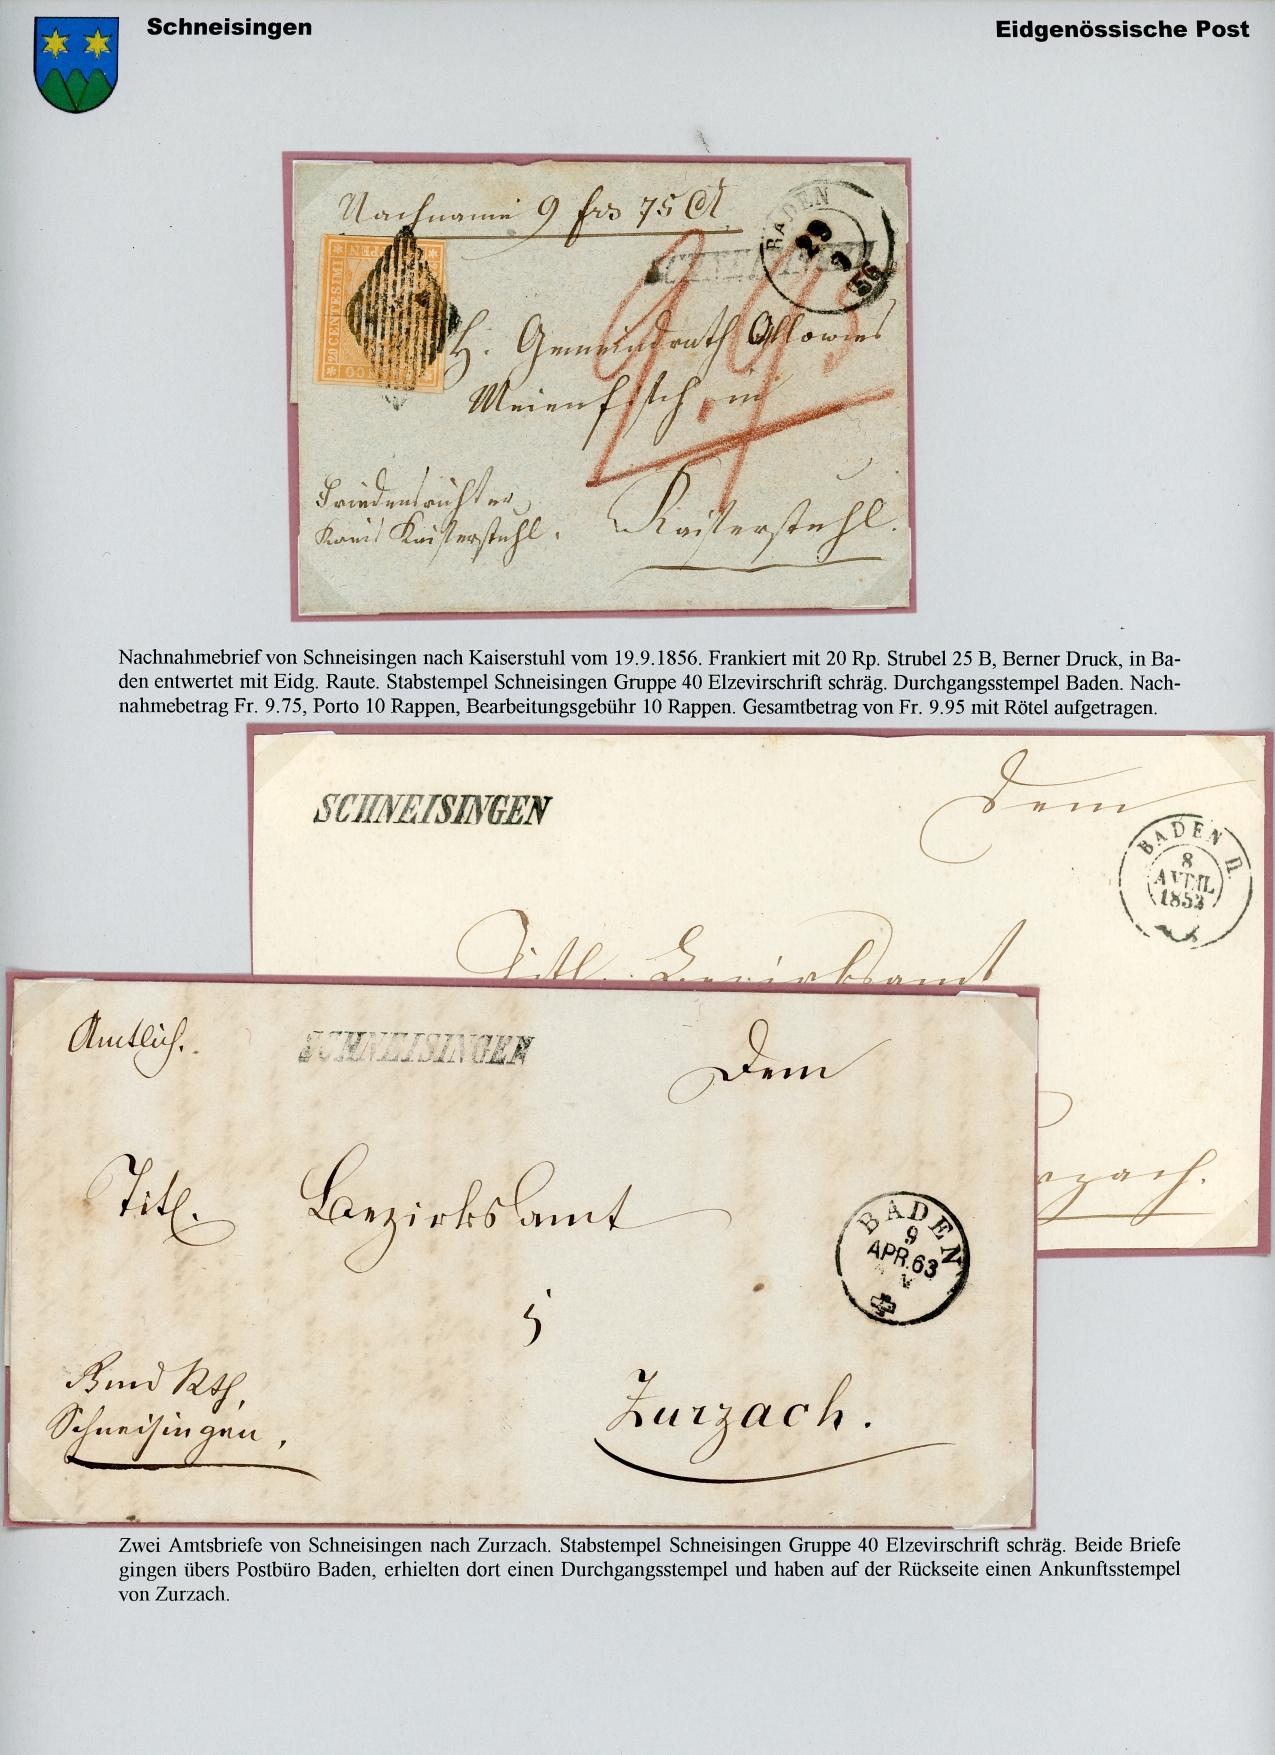 Schneisingen
Eidgenössische Post
Nachname 9 frs 75 Ct
BADEN
29
9
56
SCHNEISINGEN
20 CENTESIMI
RAPPEN
H. Gemeindrath
9.95
Meienfisch in
Friedensrichter
Kreis Kaiserstuhl.
Kaiserstuhl.
Nachnahmebrief von Schneisingen nach Kaiserstuhl vom 19.9.1856. Frankiert mit 20 Rp. Strubel 25 B, Berner Druck, in Ba-
den entwertet mit Eidg. Raute. Stabstempel Schneisingen Gruppe 40 Elzevirschrift schräg. Durchgangsstempel Baden. Nach-
nahmebetrag Fr. 9.75, Porto 10 Rappen, Bearbeitungsgebühr 10 Rappen. Gesamtbetrag von Fr. 9.95 mit Rötel aufgetragen.
SCHNEISINGEN
Dem
BADEN II.
8
AVRIL
1852
Titl. Bezirksamt
Amtlich.
SCHNEISINGEN
Dem
Titl. Bezirksamt
BADEN
9
APR. 63
Schneisingen,
Zurzach.
Zwei Amtsbriefe von Schneisingen nach Zurzach. Stabstempel Schneisingen Gruppe 40 Elzevirschrift schräg. Beide Briefe
gingen übers Postbüro Baden, erhielten dort einen Durchgangsstempel und haben auf der Rückseite einen Ankunftsstempel
von Zurzach.